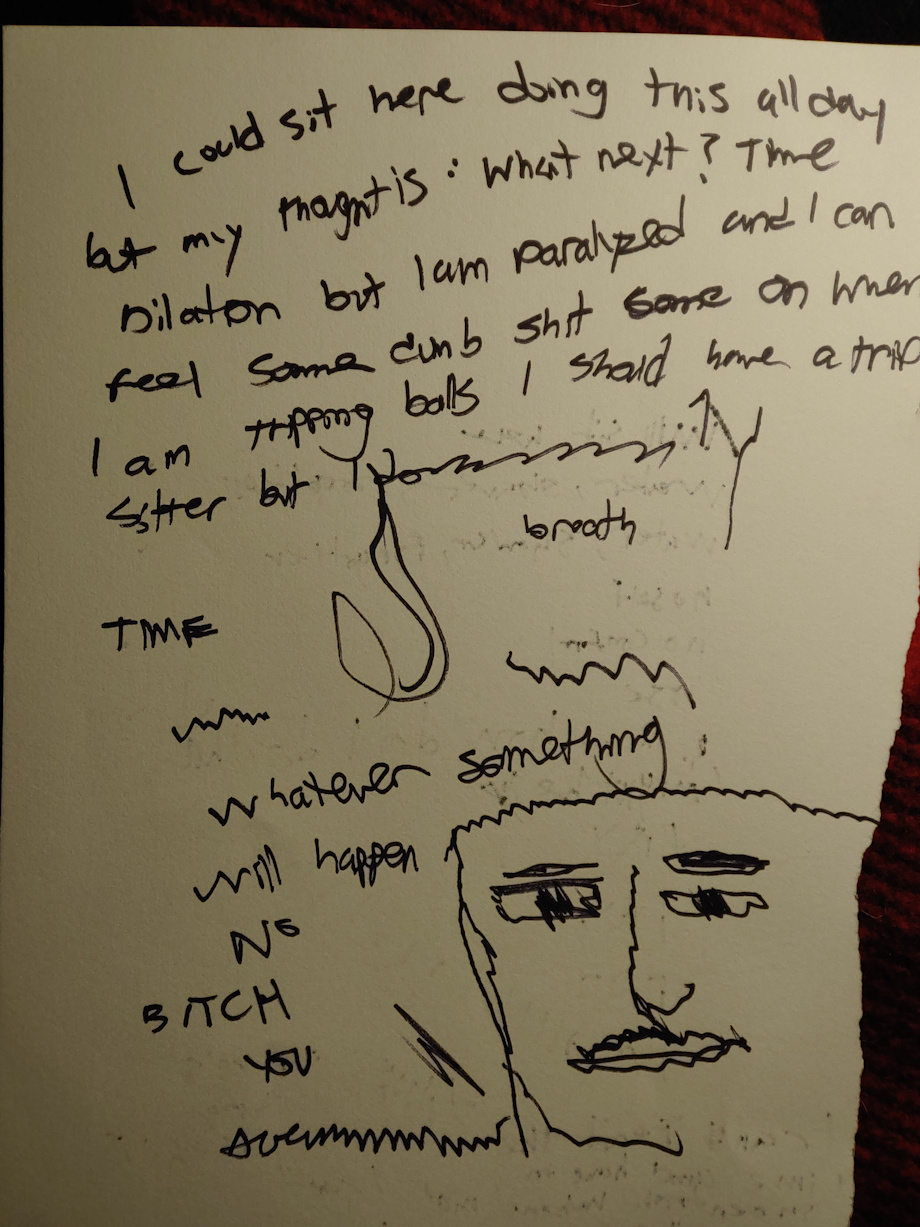 I could sit here doing this all day
but my thoght is: what next? Time
Dilaton but I am paralyzed and I can
feel some dumb shit some on when
I am tripping balls I should have a trip
sitter but I
breath
TIME
whatever something
will happen
NO
BITCH
YOU